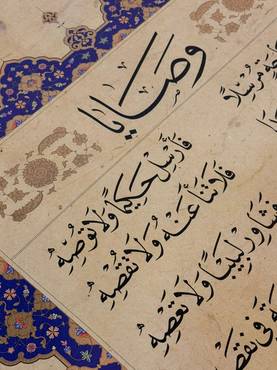 وصايا
مُرْسَلاً
فَأَرْسِلْ حَكِيمًا وَلَا تُوصِهِ
فَلَا تَنْأَ عَنْهُ وَلَا تُقْصِهِ
فَشَاوِرْ لَبِيبًا وَلَا تَعْصِهِ
فِي